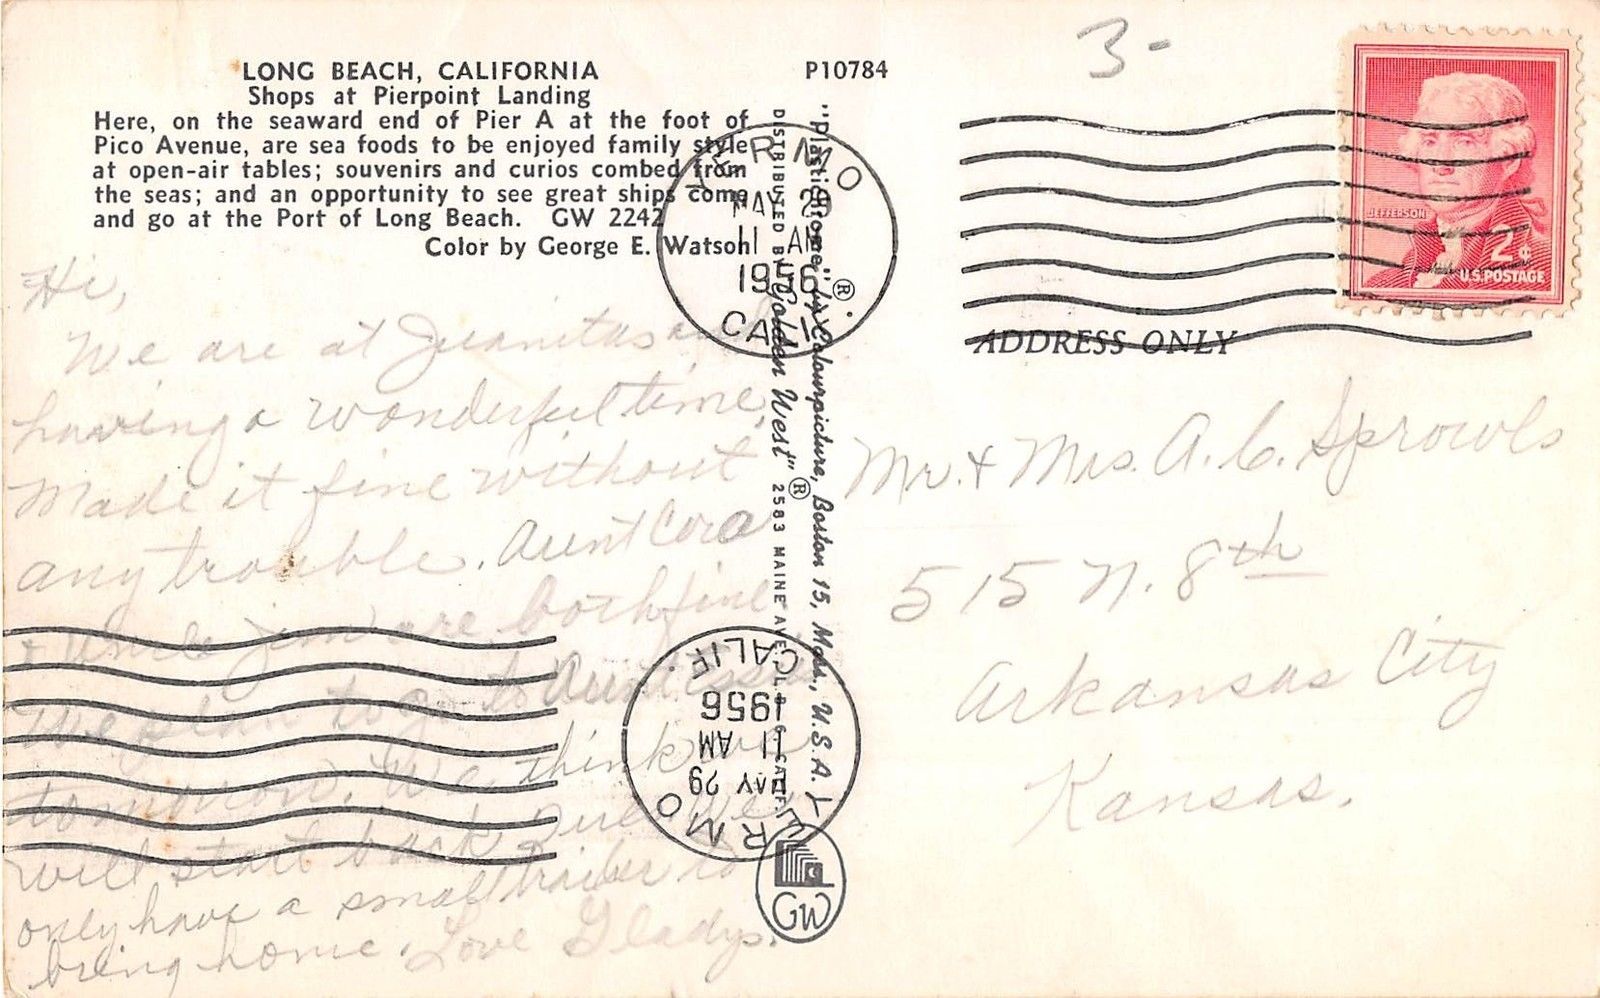 LONG BEACH, CALIFORNIA
Shops at Pierpoint Landing
Here, on the seaward end of Pier A at the foot of
Pico Avenue, are sea foods to be enjoyed family style
at open-air tables; souvenirs and curios combed from
the seas; and an opportunity to see great ships come
and go at the Port of Long Beach. GW 2242
Color by George E. Watson
P10784
3-
JEFFERSON
2¢
U.S. POSTAGE
YERMO
MAY 29
11 AM
1956
CALIF.
ADDRESS ONLY
"Plastichrome"® by Colourpicture, Boston 15, Mass., U.S.A.
DISTRIBUTED BY "Golden West"® 2583 MAINE AVE. CALIF.
Hi,
We are at Juanitas and
having a wonderful time,
Made it fine without
any trouble. Aunt Cora
+ Uncle Jim are both fine
We plan to go to Aunt
tomorrow. We think we
will start back We
only have a small trailer to
bring home. Love Gladys.
Mr. + Mrs. A. C. Sprowls
515 N. 8th
Arkansas City
Kansas.
YERMO
MAY 29
11 AM
1956
CALIF.
GW